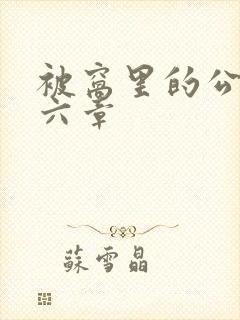 被窝里的公
六章
蘇雪晶